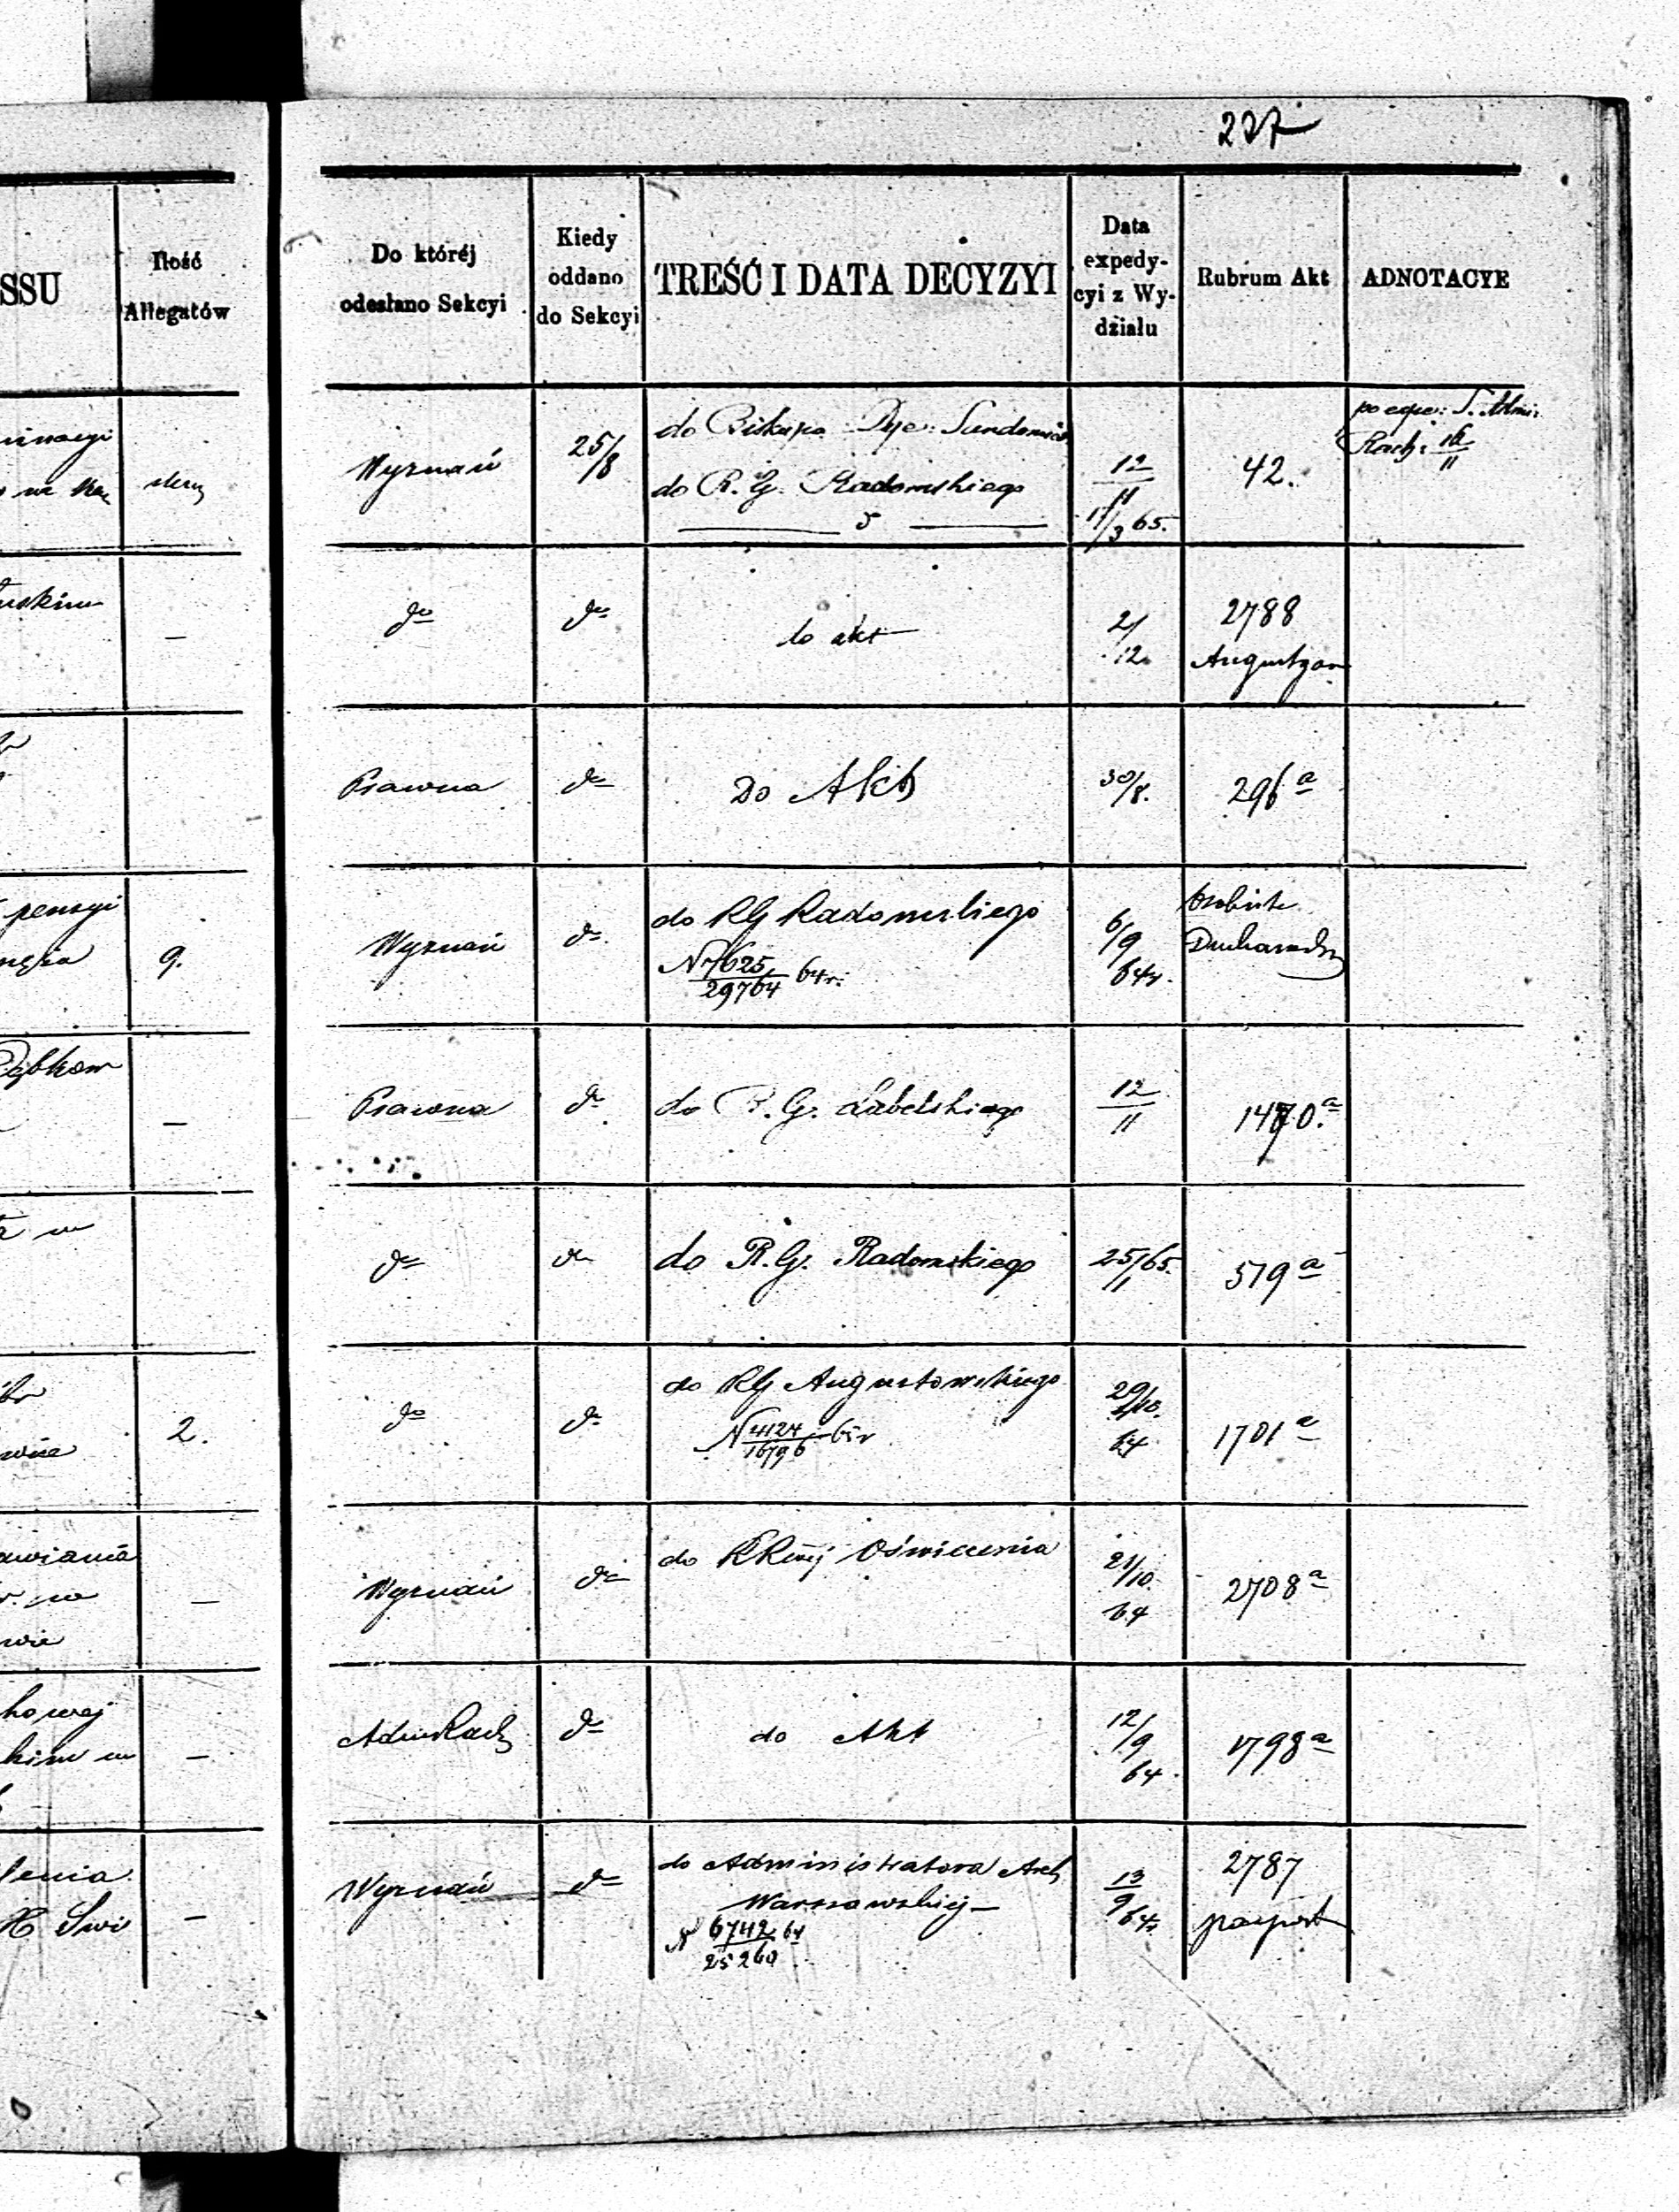 227
SSU
Ilość
Allegatów
Do któréj
odesłano Sekcyi
Kiedy
oddano
do Sekcyi
TREŚĆ I DATA DECYZYI
Data
expedy-
cyi z Wy-
działu
Rubrum Akt
ADNOTACYE
Wyznań
25/8
do Biskupa Dye: Sandomier
do R. G. Radomskiego
12/11
17/3 65.
42.
Rach: 16/11
do
do
do akt
2/12
2788
Augustyan
Prawna
do
Do Akt
30/8.
296 a
pensyi
9.
Wyznań
do
do RG Radomskiego
N 7625/29764 64 r:
6/9
64 r.
Osobiste
—
Prawna
do
do R. G. Lubelskiego
12/11
do
do
do R. G. Radomskiego
25/65.
11
519 a
2.
do
do
do RG Augustowskiego
N 4124/16796
29/10.
64
1701 a
awiania
—
Wyznań
do
do KRwéj Oświecenia
21/10.
64
2708 a
howej
kim w
—
Adm Rach
do
do Akt
12/9
64.
1798 a
lenia
—
Wyznań
do
do Administratora Arch
Warszawskiéj
N 6742/25260 64
13/9
64 r
2787